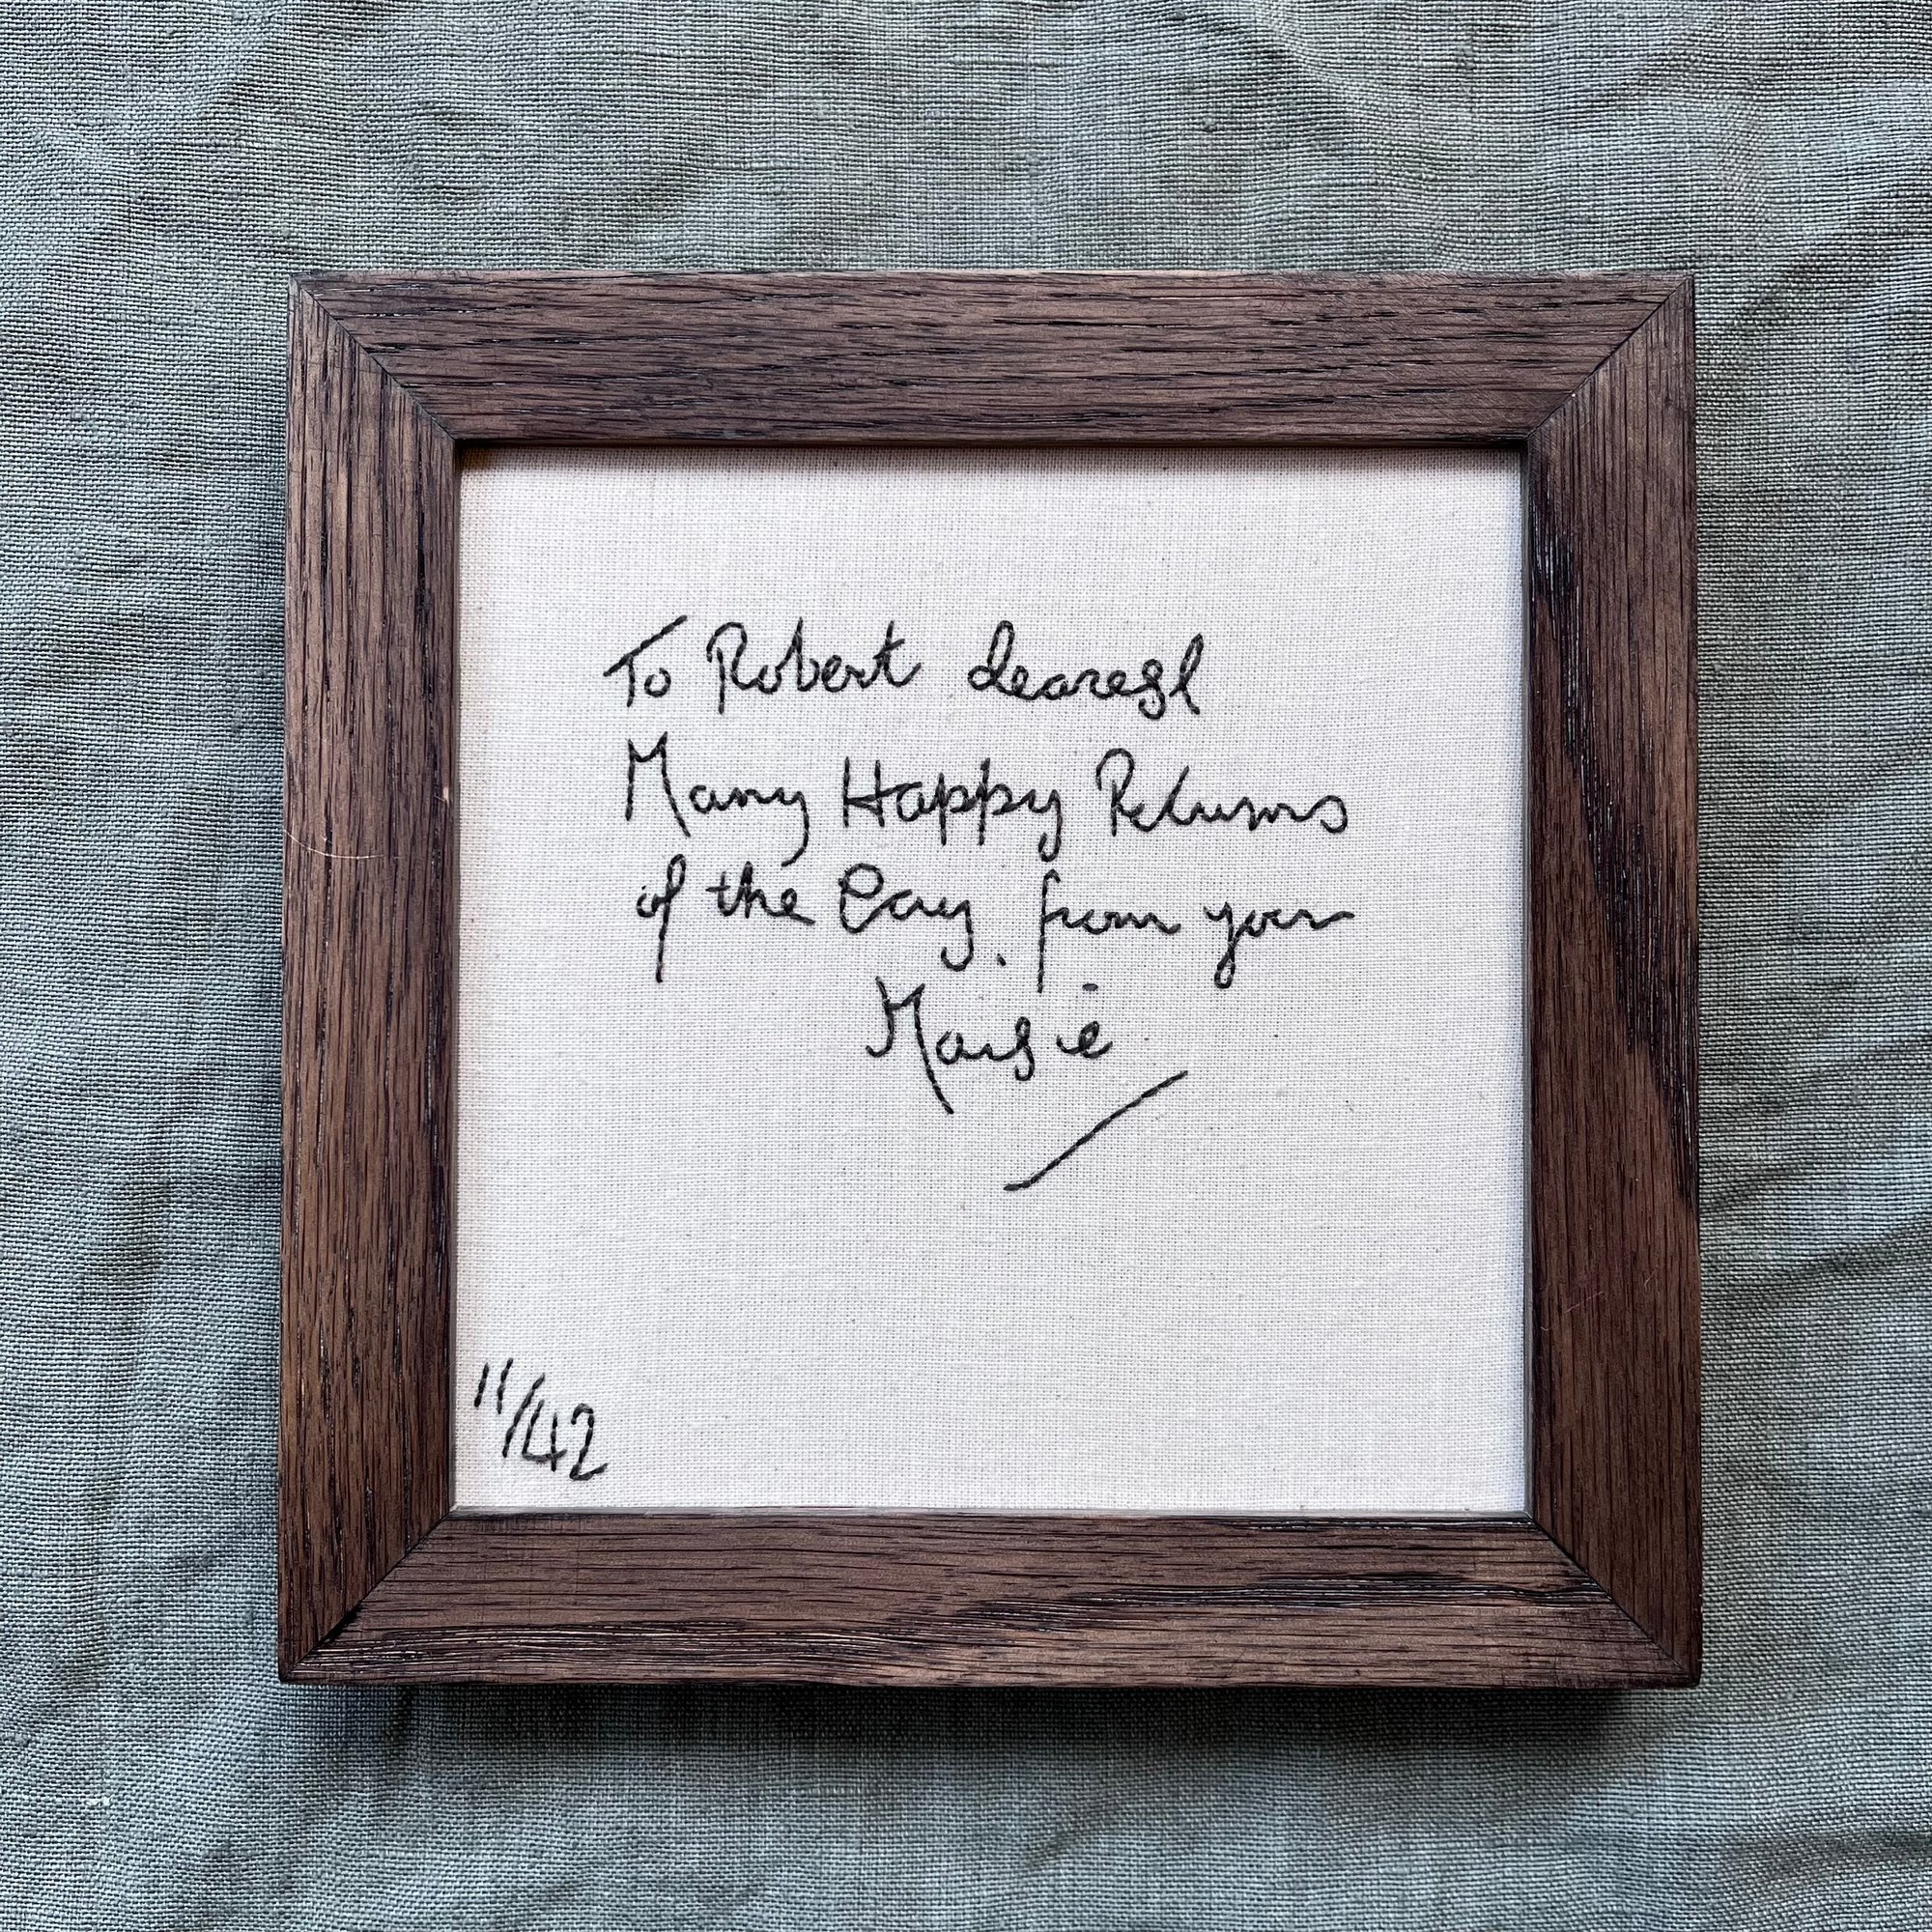 To Robert dearest
Many Happy Returns
of the Day. from your
Maisie
11/42